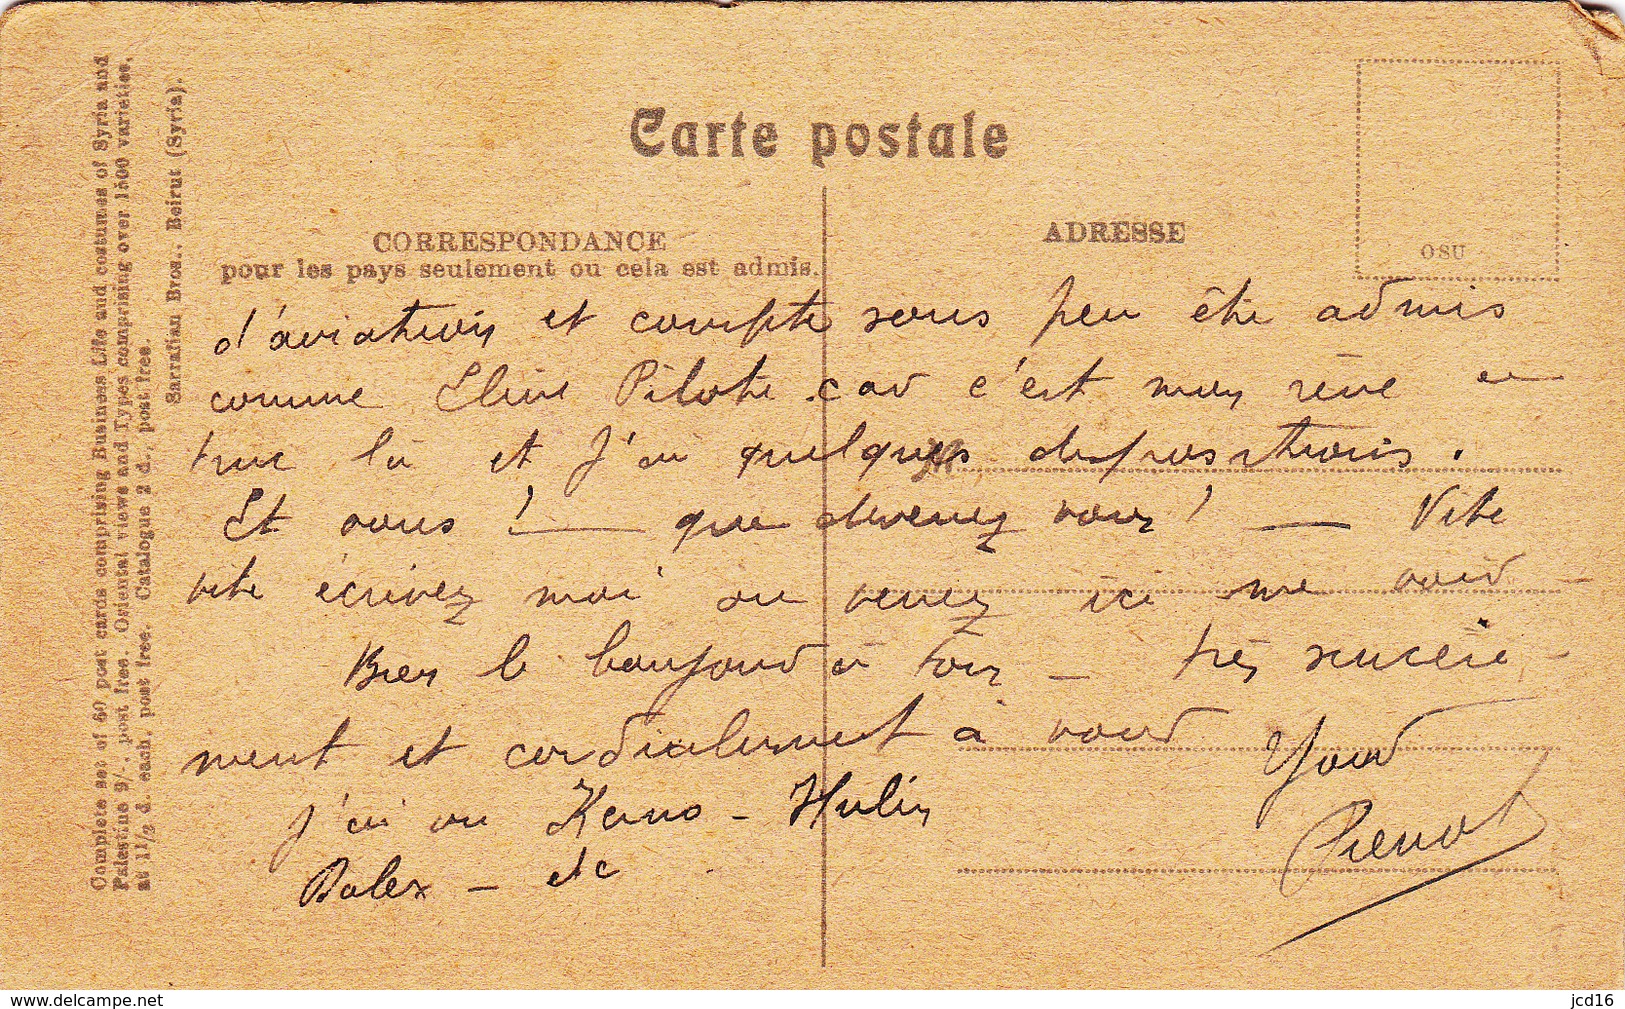 Complete set of 60 post cards comprising Business Life and costumes of Syria and
Palestine 9/-. post free. Oriental views and Types comprising over 1500 varieties.
at 1 1/2 d. each. post free. Catalogue 2 d., post free.
Sarrafian Bros., Beirut (Syria).
Carte postale
CORRESPONDANCE
pour les pays seulement ou cela est admis.
ADRESSE
OSU
d'aviation et compte sous peu être admis
comme Elève Pilote car c'est mon rêve ce
truc là et j'ai quelques dispositions.
Et vous ! — que devenez vous ! — Vite
vite écrivez moi ou venez ici me voir —
Bien le bonjour à tous — très sincère -
ment et cordialement à vous Your
J'ai vu - Hulin
- etc
delcampe.net
jcd16